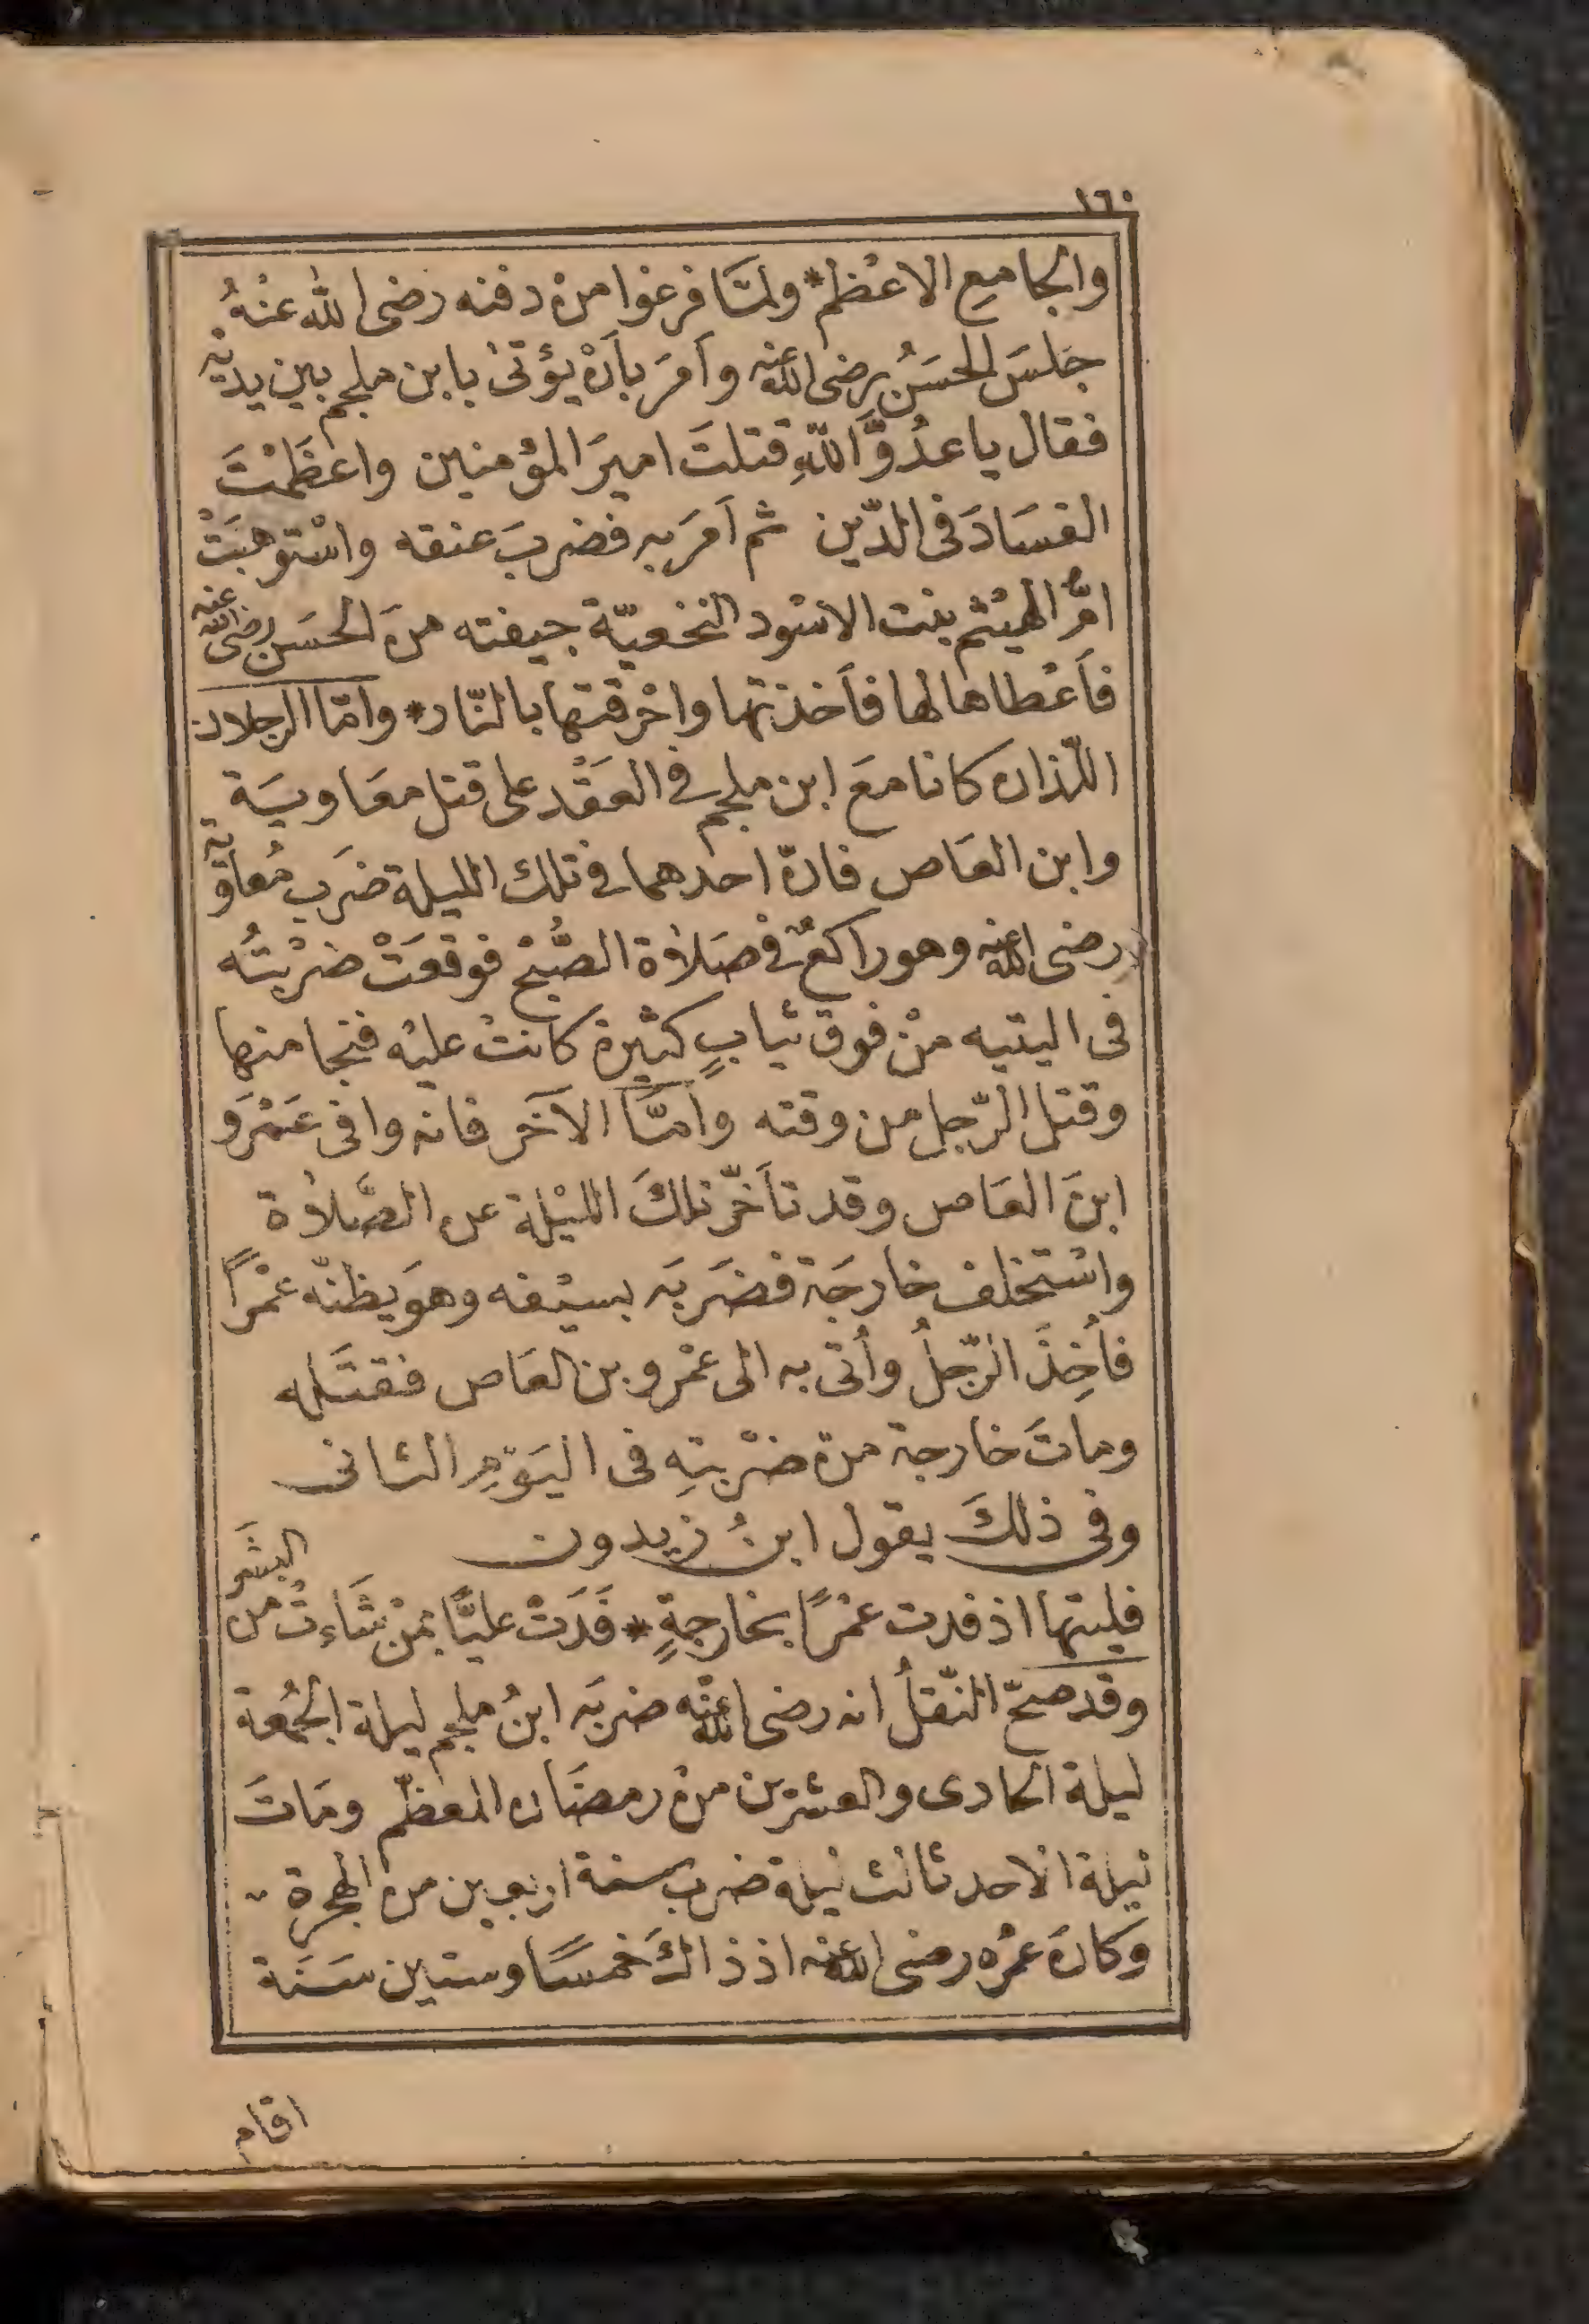 ١٦٠
والجامعِ الاعْظم * ولمَّا فرغوا منْ دفنه رضى الله عنْهُ
جَلسَ الحسَنُ رضى الله عنه وأمَرَ بأنْ يؤتىٰ بابن ملجم بين يديْه
فقال يا عدُوَّ اللهِ قتلتَ اميرَ المؤمنين واعظَمْتَ
الفسَادَ فى الدّين ثم اَمَرَ به فضربَ عنقه واسْتوهبَتْ
امُّ الهيْثم بنت الاسْود النخعيّة جيفته منَ الحسَن رضى الله عنه
فأَعْطاها لها فأَخذتها واحْرقتها بالنّار * وامّا الرجلان
اللّذان كانا معَ ابن ملجم فى العَقْد على قتل معَاويَة
وابن العَاص فانّ احدهما فى تلك الليلة ضرَب مُعاوية
رضى الله عنه وهو راكعٌ فى صَلاٰة الصُّبْح فوقعَتْ ضرْبتُه
فى اليتيه منْ فوق ثيابٍ كثيرة كانتْ عليْه فنجا منها
وقتل الرّجل من وقته وأمَّا الآخَر فانه وافى عَمْرَو
ابنَ العَاص وقد تأخّر تلكَ الليْلة عن الصَّلاٰة
واسْتخلف خارجَة فضَربَه بسيْفه وهوَ يظنّه عمْرًا
فأُخِذَ الرّجلُ وأُتى به الى عمْرو بن العَاص فقتَله
وماتَ خارجة منْ ضرْبتِه فى اليَوْمِ الثانى
وفى ذلكَ يقول ابنُ زيدون
فليتها اذ فدت عمْرًا بخارجةٍ * فَدَتْ عليًّا بمنْ شَاءتْ من البشَر
وقد صحّ النّقلُ انه رضى الله عنْه ضربَه ابنُ ملجم ليلة الجمُعة
ليلة الحادى والعشرين منْ رمضَان المعظّم ومَاتَ
ليلة الاحد ثالث ليلة ضرب سنة اربعين من الهجرة
وكانَ عمْره رضى الله عنه اذ ذاكَ خمسًا وستين سَنَة
اقام